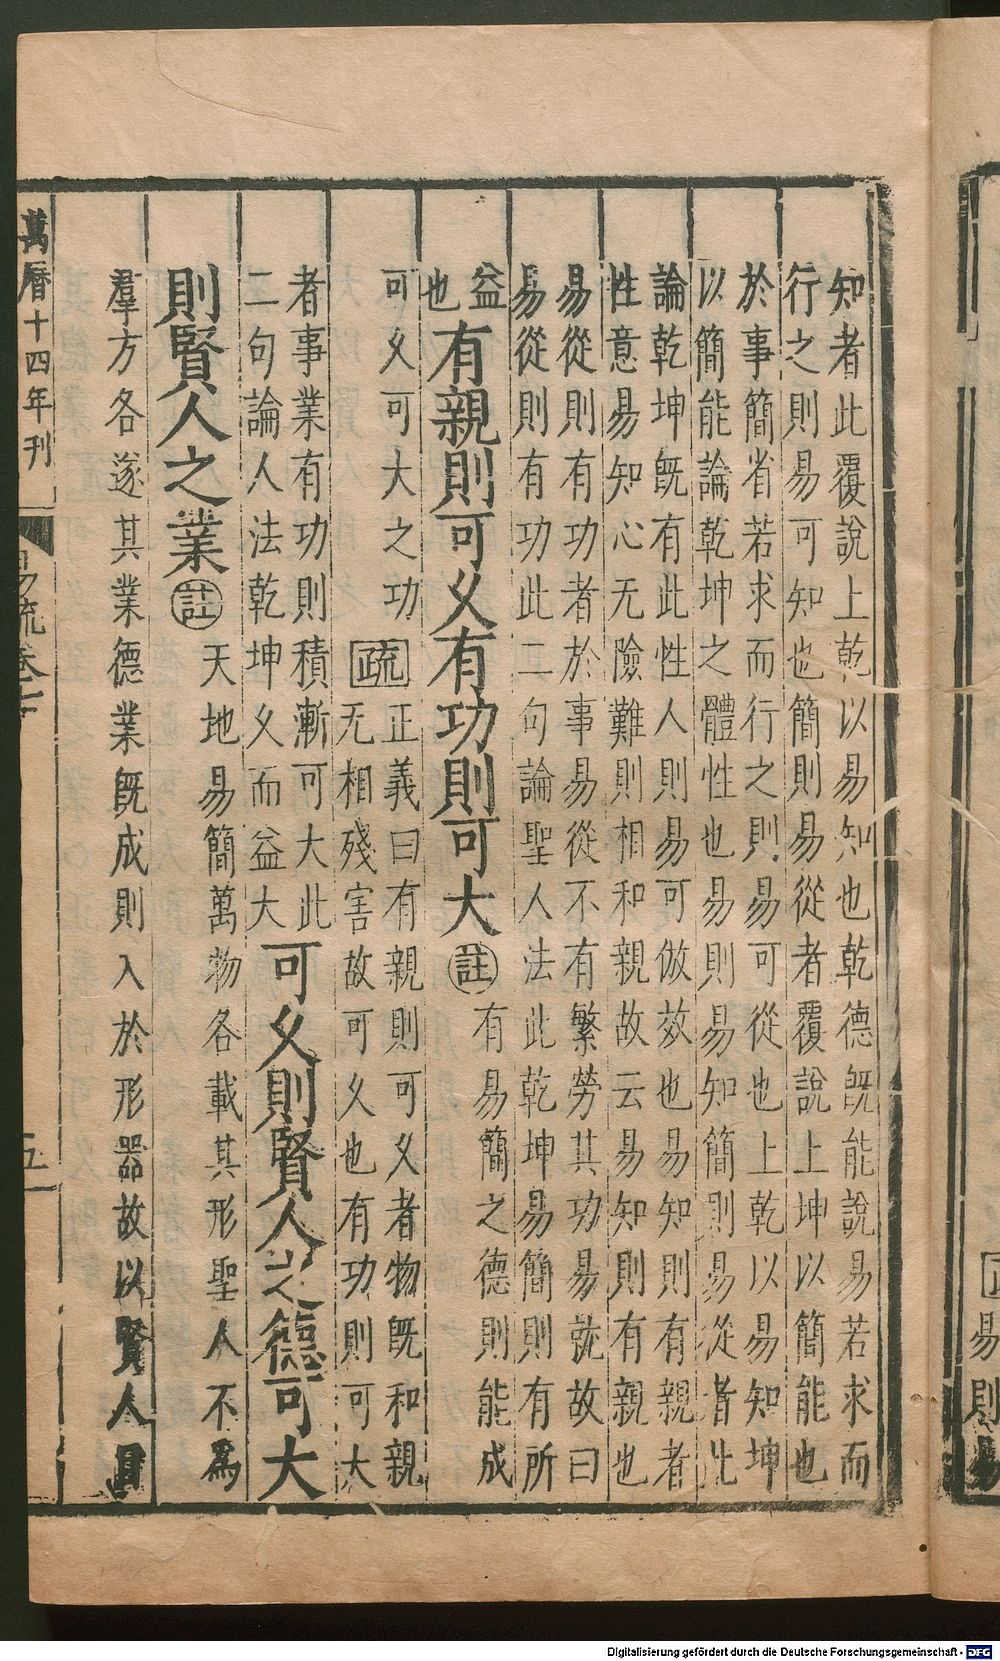 知者此覆說上乾以易知也乾德旣能說易若求而
行之則易可知也簡則易從者覆說上坤以簡能也
於事簡省若求而行之則易可從也上乾以易知坤
以簡能論乾坤之體性也易則易知簡則易從者此
論乾坤旣有此性人則易可倣效也易知則有親者
性意易知心无險難則相和親故云易知則有親也
易從則有功者於事易從不有繁勞其功易就故曰
易從則有功此二句論聖人法此乾坤易簡則有所
益也有親則可久有功則可大註有易簡之德則能成
可久可大之功疏正義曰有親則可久者物旣和親
无相殘害故可久也有功則可大
者事業有功則積漸可大此
二句論人法乾坤久而益大可久則賢人之德可大
則賢人之業註天地易簡萬物各載其形聖人不爲
羣方各遂其業德業旣成則入於形器故以賢人目
萬曆十四年刊 易疏卷七 五
Digitalisierung gefördert durch die Deutsche Forschungsgemeinschaft - DFG